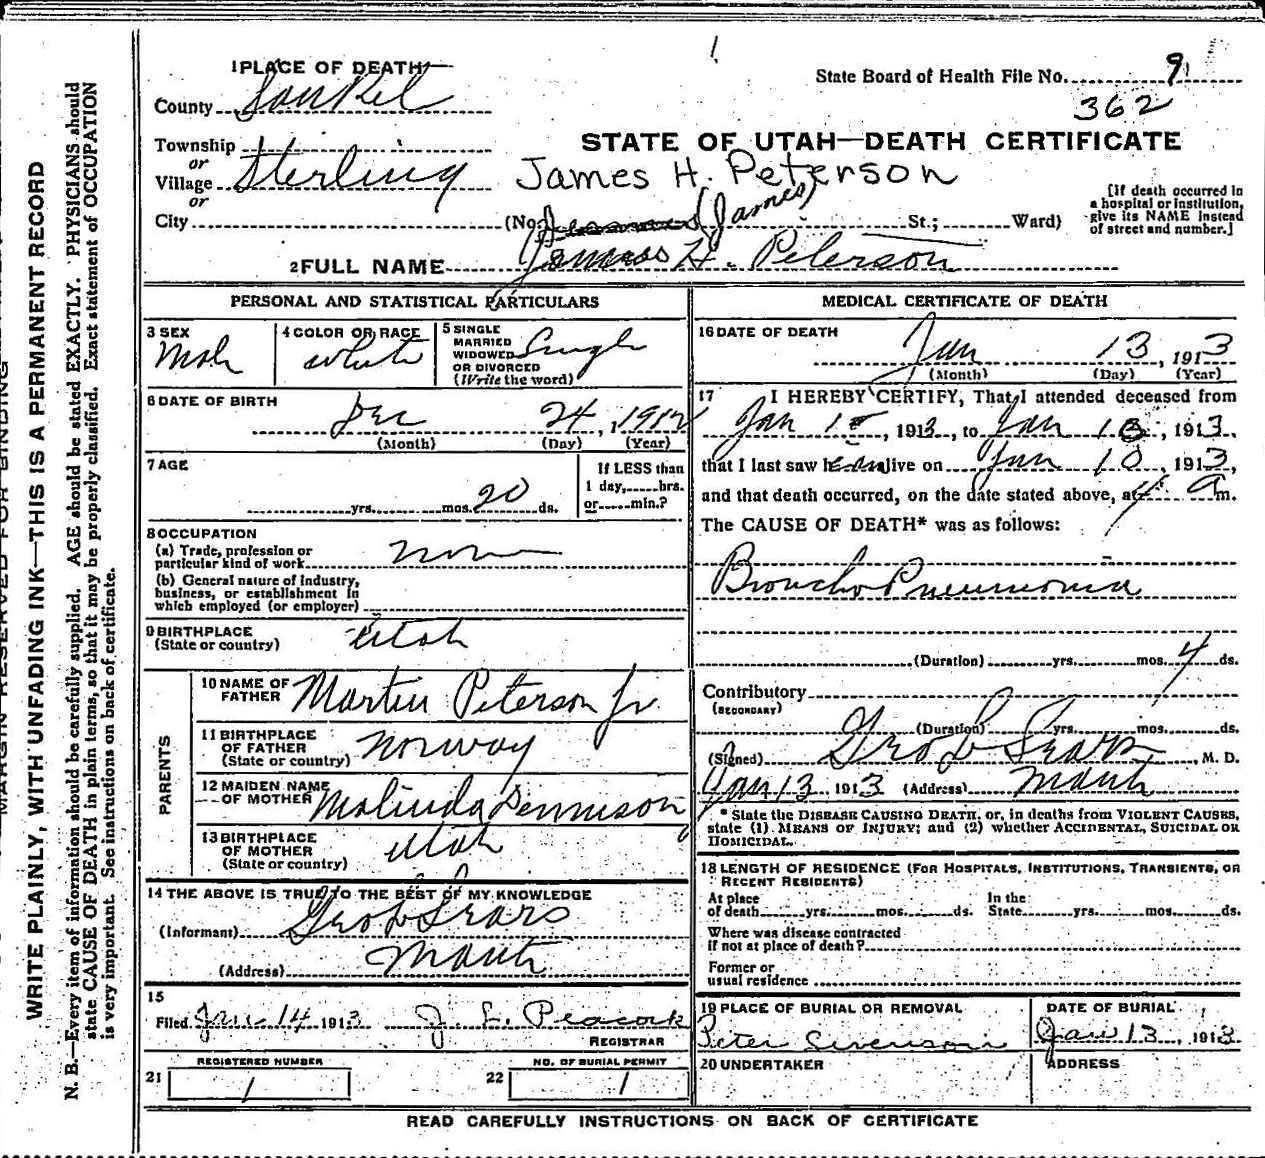 1 PLACE OF DEATH
State Board of Health File No. 9
362
County
STATE OF UTAH—DEATH CERTIFICATE
Township
or
Village Sterling
or
City
James H. Peterson
(No. (James) St.; Ward)
[If death occurred in
a hospital or institution,
give its NAME instead
of street and number.]
2 FULL NAME James H. Peterson
PERSONAL AND STATISTICAL PARTICULARS
3 SEX
Male
4 COLOR OR RACE
white
5 SINGLE
MARRIED
WIDOWED
OR DIVORCED
(Write the word)
Single
6 DATE OF BIRTH
Dec 24, 1912
(Month) (Day) (Year)
7 AGE
yrs. mos. 20 ds.
If LESS than
1 day, hrs.
or min.?
8 OCCUPATION
(a) Trade, profession or
particular kind of work none
(b) General nature of industry,
business, or establishment in
which employed (or employer)
9 BIRTHPLACE
(State or country)
Utah
PARENTS
10 NAME OF
FATHER
Martin Peterson Jr
11 BIRTHPLACE
OF FATHER
(State or country)
Norway
12 MAIDEN NAME
OF MOTHER
Malinda Dennison
13 BIRTHPLACE
OF MOTHER
(State or country)
Utah
14 THE ABOVE IS TRUE TO THE BEST OF MY KNOWLEDGE
(Informant) Geo L Sears
(Address) Manti
15
Filed Jan 14 1913 J. L. Peacock
REGISTRAR
REGISTERED NUMBER
21 1
NO. OF BURIAL PERMIT
22 1
MEDICAL CERTIFICATE OF DEATH
16 DATE OF DEATH
Jan 13, 1913
(Month) (Day) (Year)
17 I HEREBY CERTIFY, That I attended deceased from
Jan , 1913, to Jan , 1913,
that I last saw h alive on Jan 10, 1913,
and that death occurred, on the date stated above, at 4 a m.
The CAUSE OF DEATH* was as follows:
Broncho Pneumonia
(Duration) yrs. mos. 4 ds.
Contributory
(SECONDARY)
(Duration) yrs. mos. ds.
(Signed) Geo L Sears, M. D.
Jan 13, 1913 (Address) Manti
* State the DISEASE CAUSING DEATH, or, in deaths from VIOLENT CAUSES,
state (1) MEANS OF INJURY; and (2) whether ACCIDENTAL, SUICIDAL OR
HOMICIDAL.
18 LENGTH OF RESIDENCE (FOR HOSPITALS, INSTITUTIONS, TRANSIENTS, OR
RECENT RESIDENTS)
At place
of death yrs. mos. ds.
In the
State yrs. mos. ds.
Where was disease contracted
if not at place of death?
Former or
usual residence
19 PLACE OF BURIAL OR REMOVAL
Peter
DATE OF BURIAL
Jan 13, 1913
20 UNDERTAKER
ADDRESS
READ CAREFULLY INSTRUCTIONS ON BACK OF CERTIFICATE
MARGIN RESERVED FOR BINDING
WRITE PLAINLY, WITH UNFADING INK—THIS IS A PERMANENT RECORD
N. B.—Every item of information should be carefully supplied. AGE should be stated EXACTLY. PHYSICIANS should
state CAUSE OF DEATH in plain terms, so that it may be properly classified. Exact statement of OCCUPATION
is very important. See instructions on back of certificate.